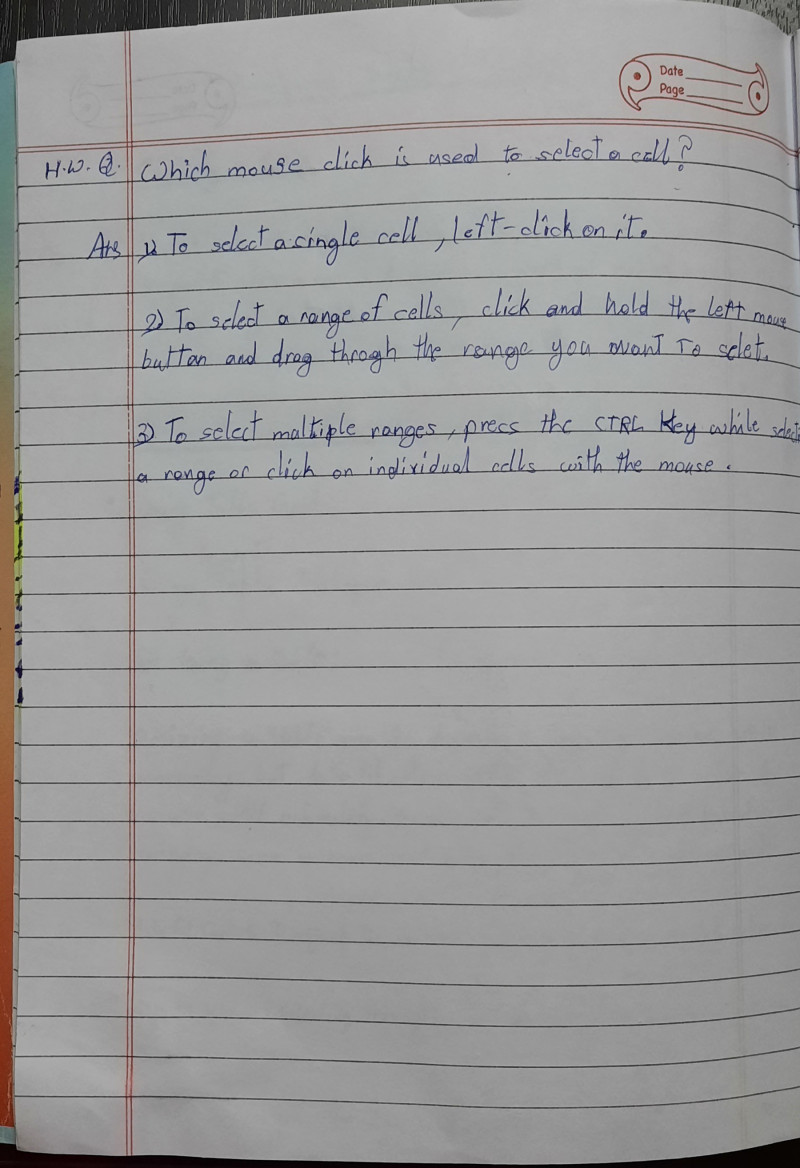 Date
Page
H.W. Q. Which mouse click is used to select a cell?
Ans 1) To select a single cell, left-click on it.
2) To select a range of cells, click and hold the left mouse
button and drag throgh the range you want To selet.
3) To select maltiple ranges, press the CTRL key while
a range or click on individual cells with the mouse.